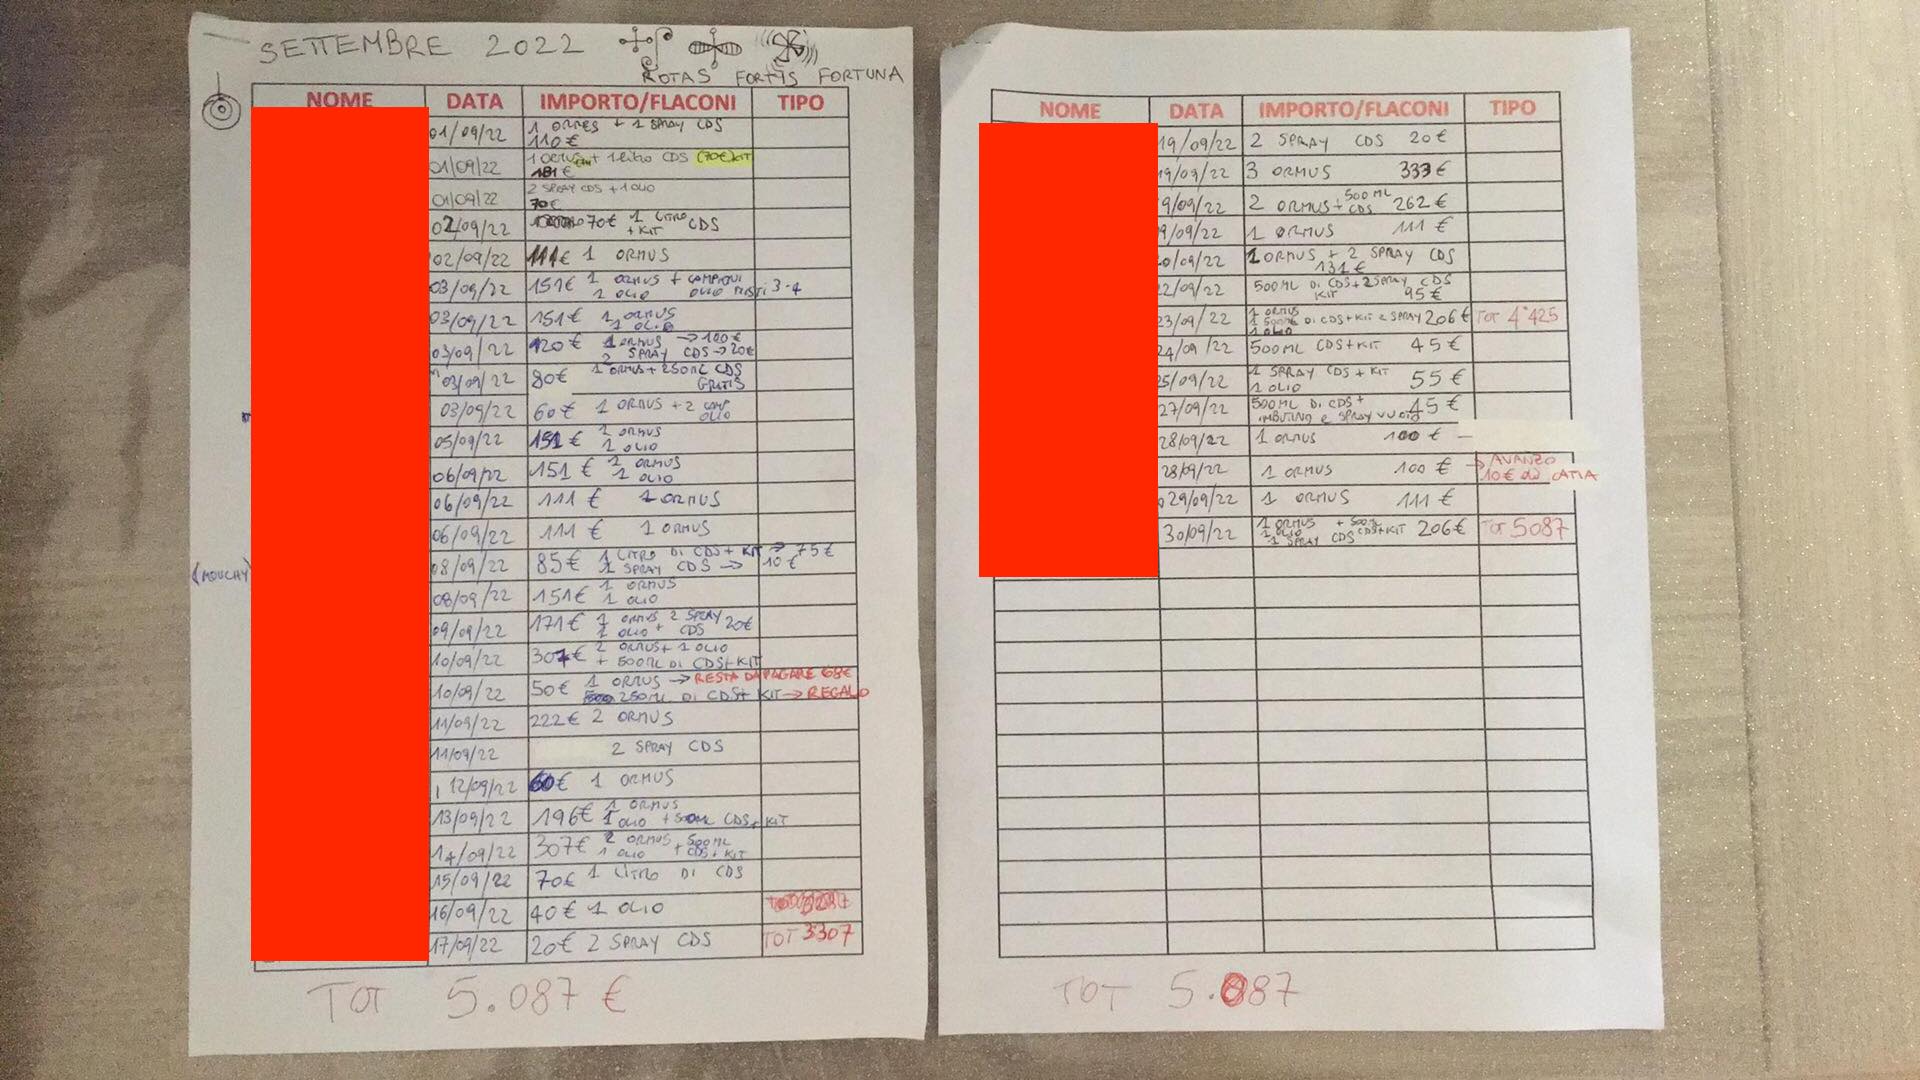 SETTEMBRE 2022
ROTAS FORTIS FORTUNA
NOME DATA IMPORTO/FLACONI TIPO
01/09/22 1 ORMES + 1 SPRAY CDS
110€
01/09/22 1 litro CDS (70€) KIT
181€
01/09/22 2 SPRAY CDS + 1 OLIO
70€
02/09/22 70€ 1 LITRO CDS
+ KIT
02/09/22 111€ 1 ORMUS
03/09/22 151€ 1 ORMUS + CAMPIONI
1 OLIO OLIO MISTI 3-4
03/09/22 151€ 1 ORMUS
1 OLIO
03/09/22 120€ 1 ORMUS → 100€
2 SPRAY CDS → 20€
03/09/22 80€ 1 ORMUS + 250ML CDS
GRATIS
03/09/22 60€ 1 ORMUS + 2 CAMP
OLIO
05/09/22 151€ 1 ORMUS
1 OLIO
06/09/22 151€ 1 ORMUS
1 OLIO
06/09/22 111€ 1 ORMUS
06/09/22 111€ 1 ORMUS
(MOUCHAY)
08/09/22 85€ 1 LITRO DI CDS + KIT → 75€
1 SPRAY CDS → 10€
08/09/22 151€ 1 ORMUS
1 OLIO
09/09/22 171€ 1 ORMUS 2 SPRAY 20€
1 OLIO + CDS
10/09/22 307€ 2 ORMUS + 1 OLIO
+ 500ML DI CDS + KIT
10/09/22 50€ 1 ORMUS → RESTA DA PAGARE 68€
250ML DI CDS + KIT → REGALO
11/09/22 222€ 2 ORMUS
11/09/22 2 SPRAY CDS
12/09/22 60€ 1 ORMUS
13/09/22 196€ 1 ORMUS
1 OLIO + 500ML CDS + KIT
14/09/22 307€ 2 ORMUS + 500ML
1 OLIO CDS + KIT
15/09/22 70€ 1 LITRO DI CDS
16/09/22 40€ 1 OLIO
17/09/22 20€ 2 SPRAY CDS TOT 3307
TOT 5.087 €
NOME DATA IMPORTO/FLACONI TIPO
19/09/22 2 SPRAY CDS 20€
19/09/22 3 ORMUS 333€
9/09/22 2 ORMUS + 500ML CDS 262€
9/09/22 1 ORMUS 111€
0/09/22 1 ORMUS + 2 SPRAY CDS
131€
22/09/22 500ML DI CDS + 2 SPRAY CDS
KIT 95€
23/09/22 1 ORMUS
1 500ML DI CDS + KIT 2 SPRAY 206€ TOT 4°425
1 OLIO
24/09/22 500ML CDS + KIT 45€
25/09/22 1 SPRAY CDS + KIT
1 OLIO 55€
27/09/22 500ML DI CDS +
IMBUTINO e SPRAY VUOTO 45€
28/09/22 1 ORMUS 100€ –
28/09/22 1 ORMUS 100€ → AVANZO
10€ da CATIA
29/09/22 1 ORMUS 111€
30/09/22 1 ORMUS + 500ML
1 OLIO CDS + KIT 206€ TOT 5087
1 SPRAY CDS
TOT 5.087